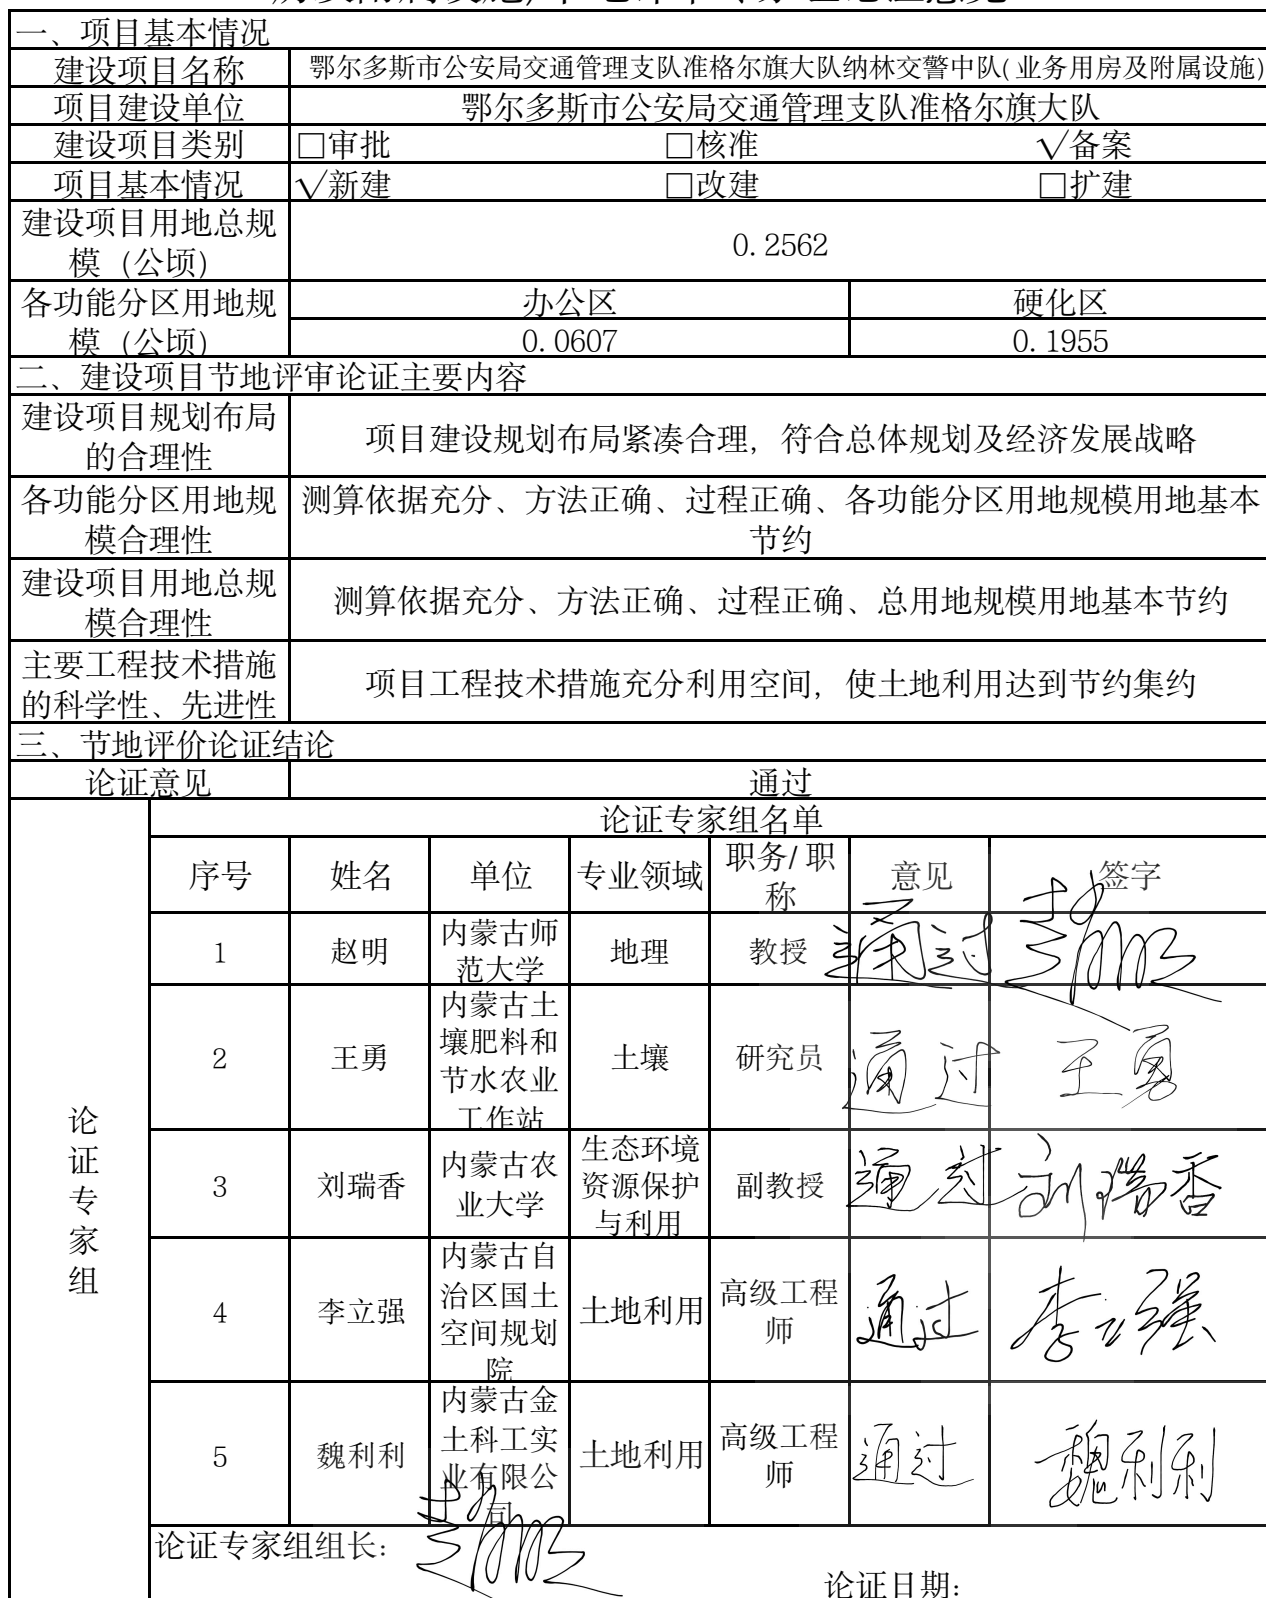 房及附属设施)节地评审专家组论证意见
一、项目基本情况
建设项目名称
鄂尔多斯市公安局交通管理支队准格尔旗大队纳林交警中队(业务用房及附属设施)
项目建设单位
鄂尔多斯市公安局交通管理支队准格尔旗大队
建设项目类别
□审批 □核准 √备案
项目基本情况
√新建 □改建 □扩建
建设项目用地总规
模（公顷）
0.2562
各功能分区用地规
模（公顷）
办公区 硬化区
0.0607 0.1955
二、建设项目节地评审论证主要内容
建设项目规划布局
的合理性
项目建设规划布局紧凑合理，符合总体规划及经济发展战略
各功能分区用地规
模合理性
测算依据充分、方法正确、过程正确、各功能分区用地规模用地基本
节约
建设项目用地总规
模合理性
测算依据充分、方法正确、过程正确、总用地规模用地基本节约
主要工程技术措施
的科学性、先进性
项目工程技术措施充分利用空间，使土地利用达到节约集约
三、节地评价论证结论
论证意见
通过
论证专家组
论证专家组名单
序号
姓名
单位
专业领域
职务/职
称
意见
签字
1
赵明
内蒙古师
范大学
地理
教授
通过
赵明
2
王勇
内蒙古土
壤肥料和
节水农业
工作站
土壤
研究员
通过
王勇
3
刘瑞香
内蒙古农
业大学
生态环境
资源保护
与利用
副教授
通过
刘瑞香
4
李立强
内蒙古自
治区国土
空间规划
院
土地利用
高级工程
师
通过
李立强
5
魏利利
内蒙古金
土科工实
业有限公
司
土地利用
高级工程
师
通过
魏利利
论证专家组组长：
赵明
论证日期：